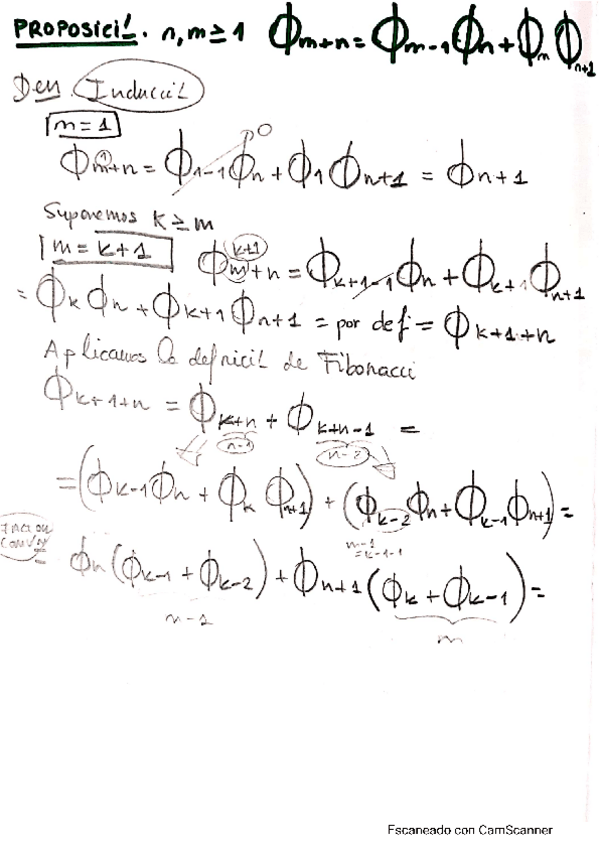 PROPOSICI!. n, m ≥ 1 ϕm+n = ϕm-1 ϕn + ϕm ϕn+1
Dem. Inducci!
m = 1
ϕm+n = ϕ1-1 ϕn + ϕ1 ϕn+1 = ϕn+1
1
0
Suponemos k ≥ m
m = k+1
k+1
ϕm+n = ϕk+1-1 ϕn + ϕk+1 ϕn+1
= ϕk ϕn + ϕk+1 ϕn+1 = por def = ϕk+1+n
Aplicamos la definici! de Fibonacci
ϕk+1+n = ϕk+n + ϕk+n-1 =
n-1
n-2
= (ϕk-1 ϕn + ϕk ϕn+1) + (ϕk-2 ϕn + ϕk-1 ϕn+1) =
n-1
= k-1-1
= ϕn (ϕk-1 + ϕk-2) + ϕn+1 (ϕk + ϕk-1) =
m
Escaneado con CamScanner